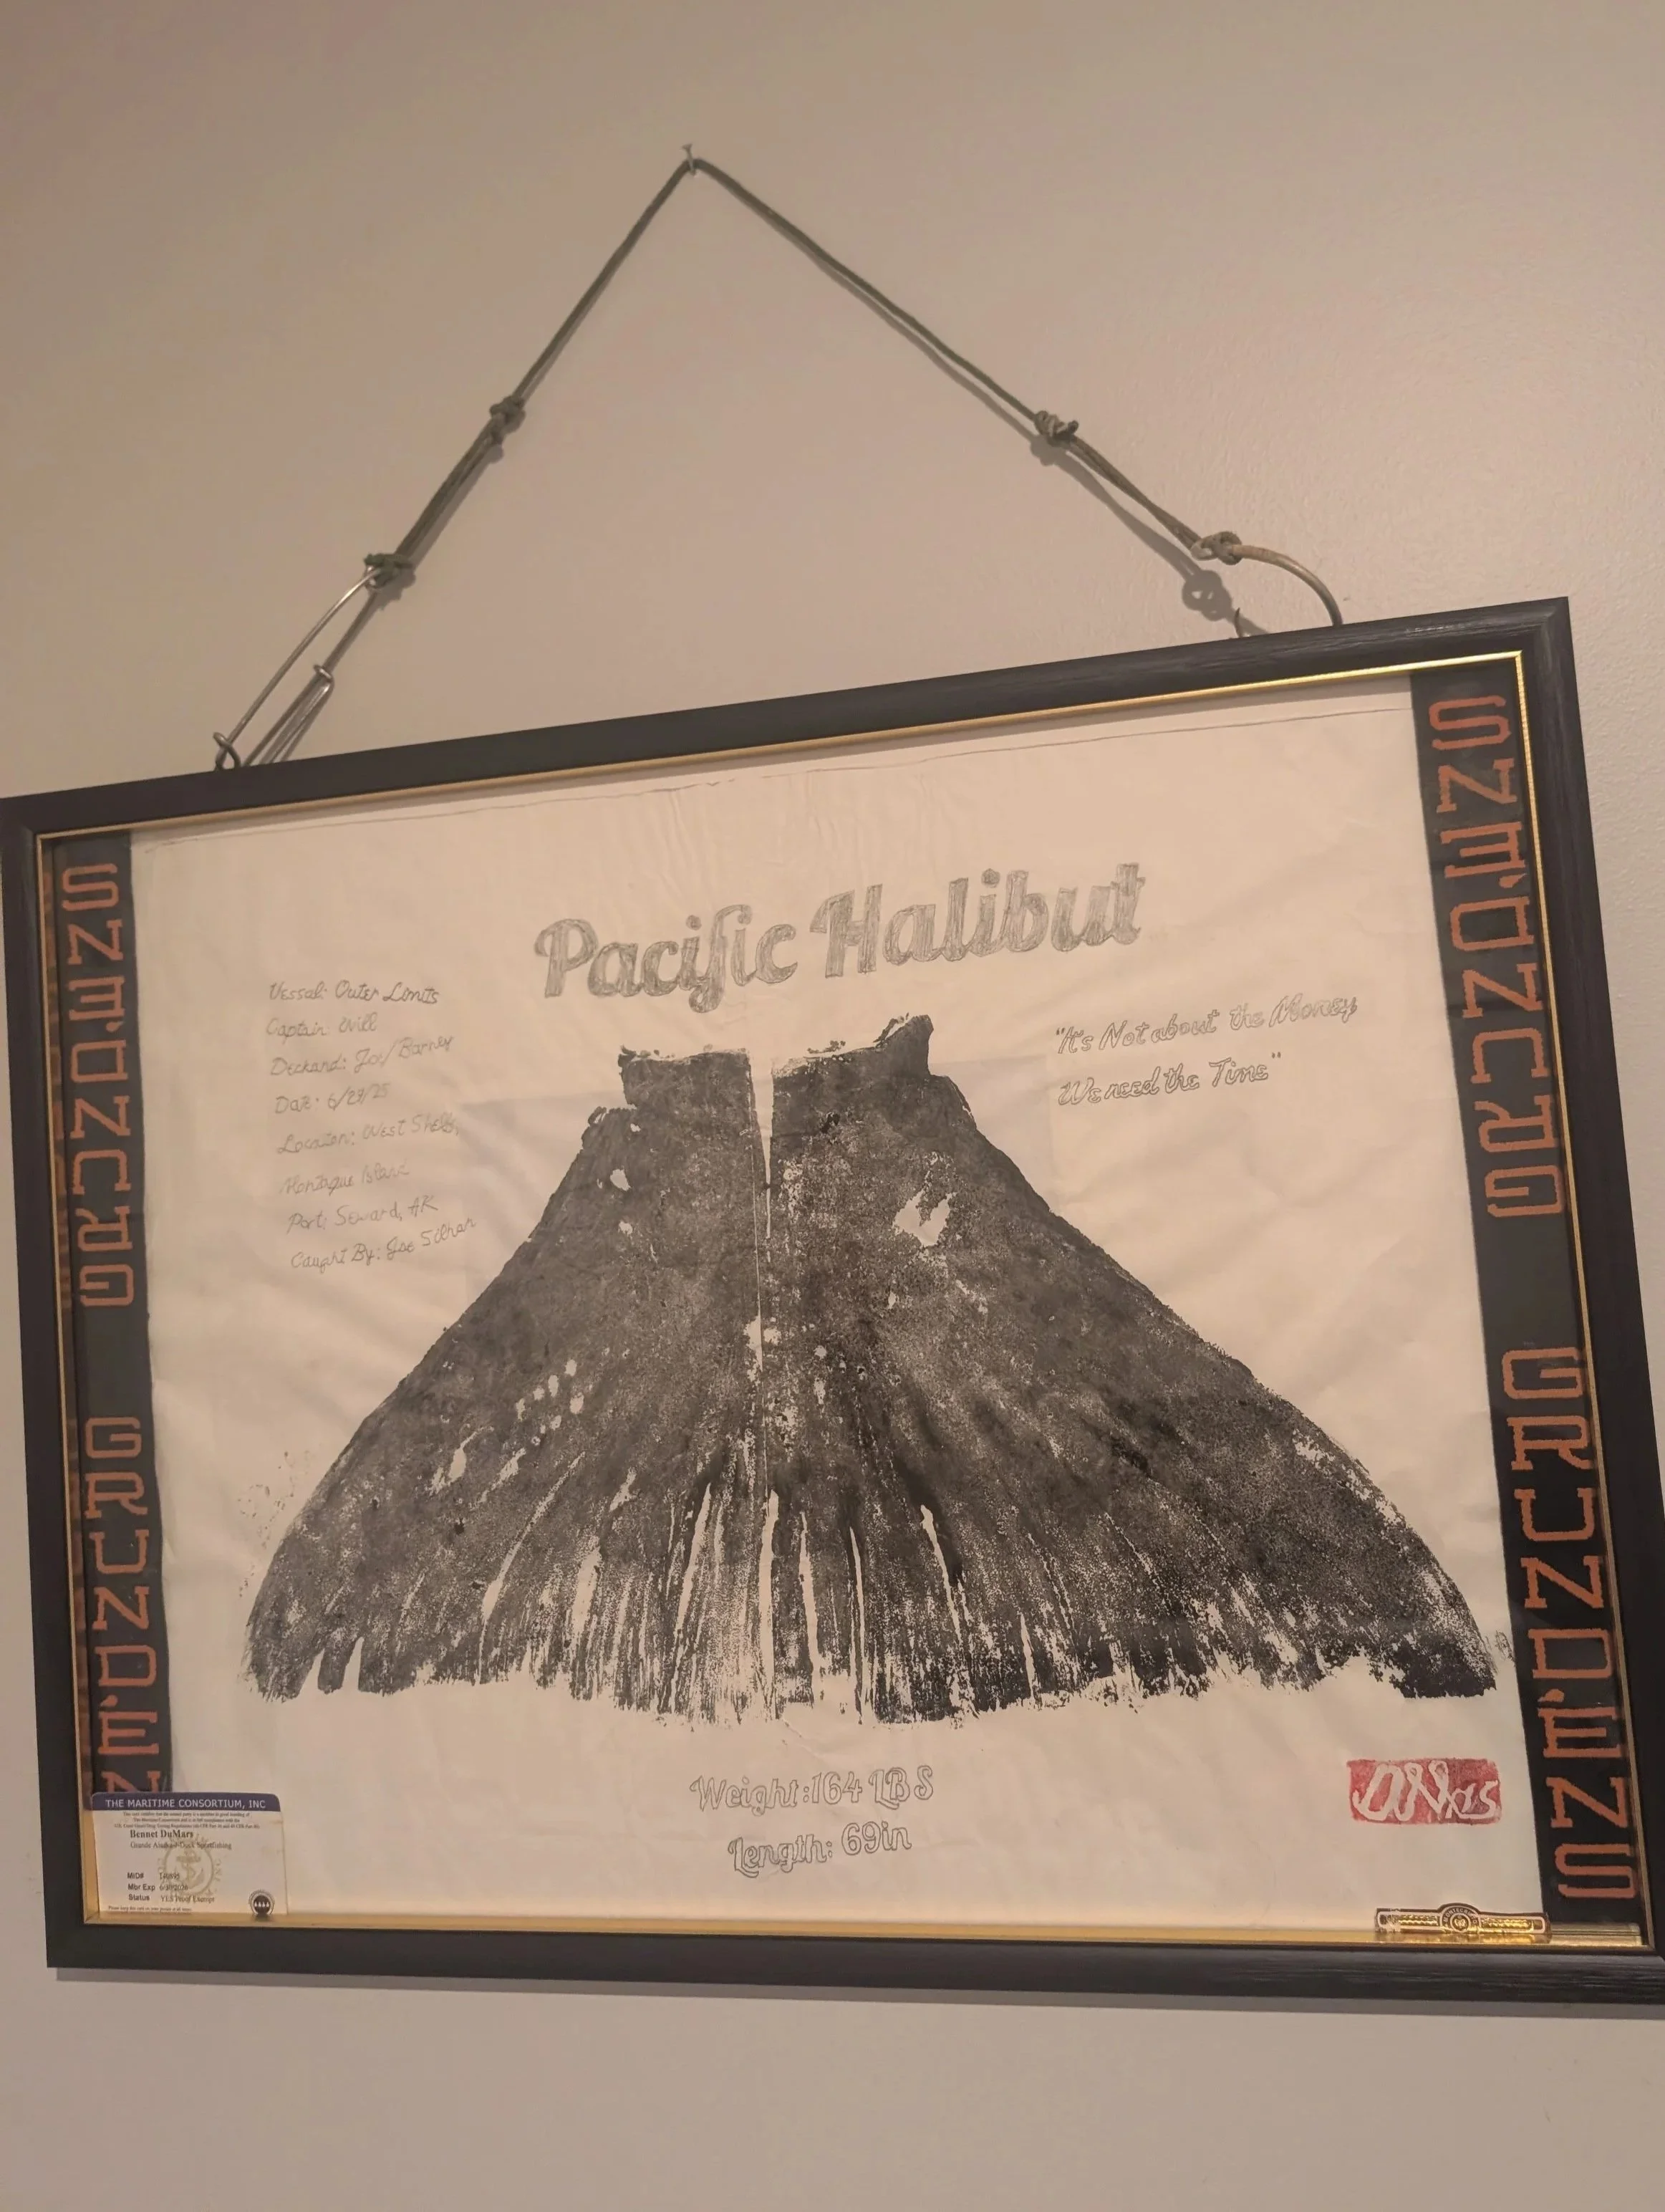 Pacific Halibut
Vessal: Outer Limits
Captain: Will
Deckand: Joe/Barney
Date: 6/29/25
Location: West Shelf,
Montague Island
Port: Seward, AK
Caught By: Joe
"It's Not about the Money
We need the Time"
Weight: 164 LBS
Length: 69in
GRUNDÉNS
GRUNDÉNS
GRUNDÉNS
GRUNDÉNS
THE MARITIME CONSORTIUM, INC
Bennet DuMars
MID#
Mbr Exp
Status